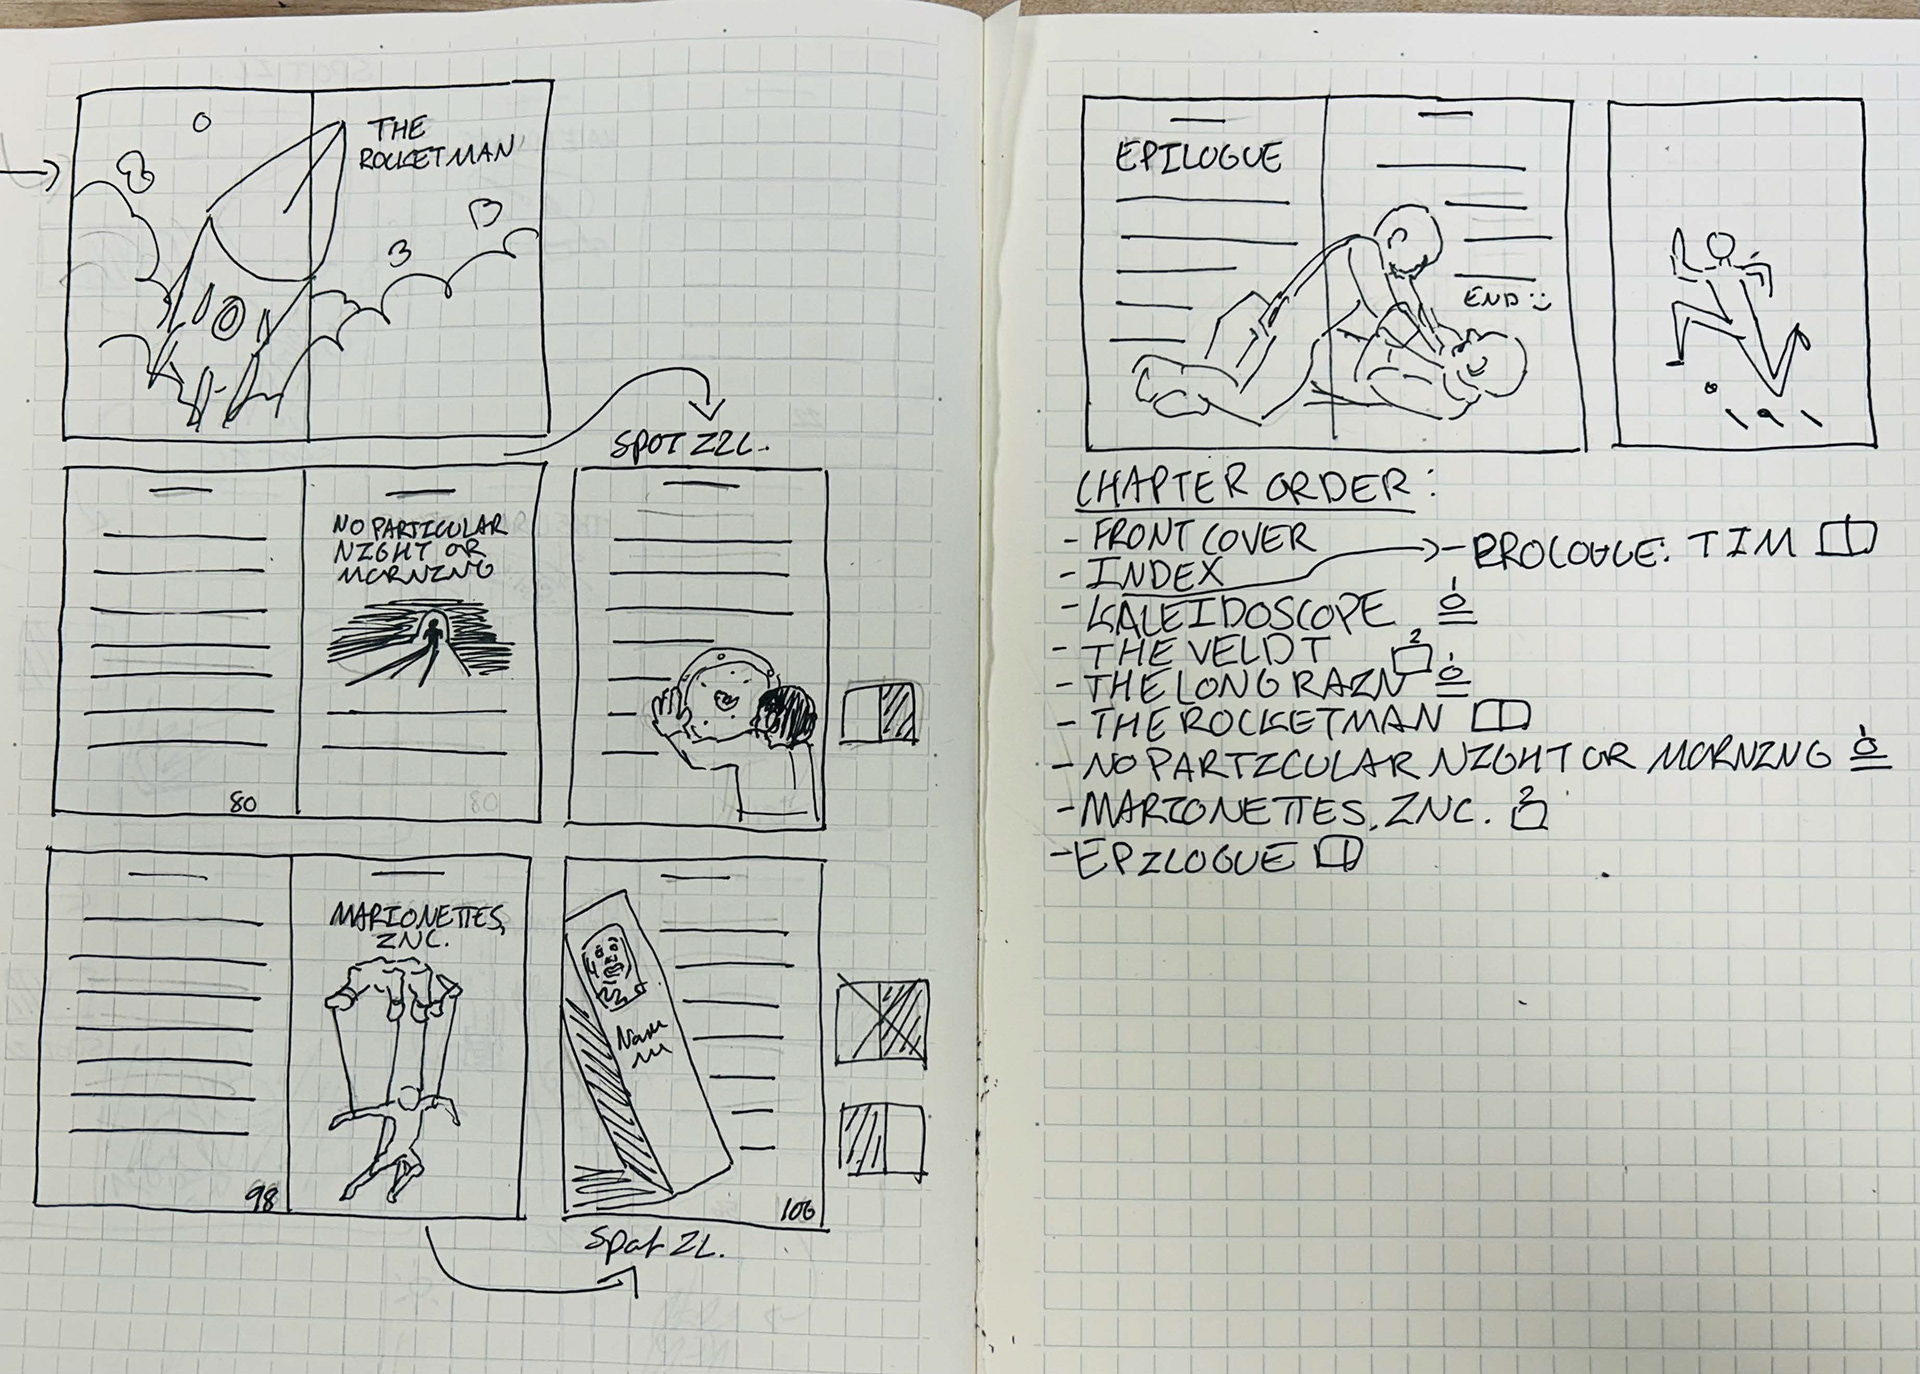 THE
ROCKETMAN
SPOT ILL.
NO PARTICULAR
NIGHT OR
MORNING
80
MARIONETTES,
INC.
98
106
Spot IL.
EPILOGUE
END :)
CHAPTER ORDER:
- FRONT COVER
- INDEX → - PROLOGUE: TIM
- KALEIDOSCOPE 1
- THE VELDT 2
- THE LONG RAIN 1
- THE ROCKETMAN
- NO PARTICULAR NIGHT OR MORNING 1
- MARIONETTES, INC. 2
- EPILOGUE